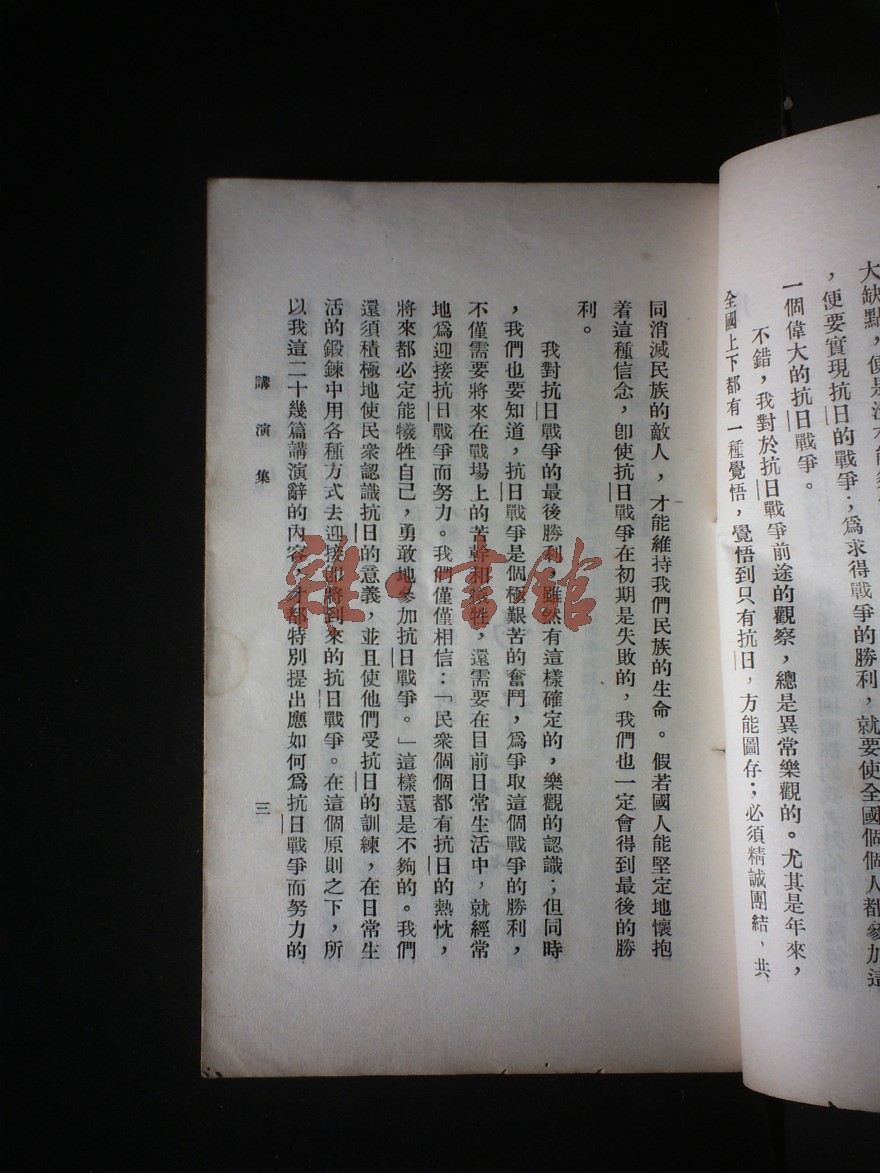 大缺點，便是沒
，便要實現抗日的戰爭；爲求得戰爭的勝利，就要使全國個個人都參加這
一個偉大的抗日戰爭。
不錯，我對於抗日戰爭前途的觀察，總是異常樂觀的。尤其是年來，
全國上下都有一種覺悟，覺悟到只有抗日，方能圖存；必須精誠團結，共
同消滅民族的敵人，才能維持我們民族的生命。假若國人能堅定地懷抱
着這種信念，卽使抗日戰爭在初期是失敗的，我們也一定會得到最後的勝
利。
我對抗日戰爭的最後勝利，雖然有這樣確定的，樂觀的認識；但同時
，我們也要知道，抗日戰爭是個極艱苦的奮鬥，爲爭取這個戰爭的勝利，
不僅需要將來在戰場上的苦幹和犧牲，還需要在目前日常生活中，就經常
地爲迎接抗日戰爭而努力。我們僅僅相信：「民衆個個都有抗日的熱忱，
將來都必定能犧牲自己，勇敢地參加抗日戰爭。」這樣還是不夠的。我們
還須積極地使民衆認識抗日的意義，並且使他們受抗日的訓練，在日常生
活的鍛鍊中用各種方式去迎接卽將到來的抗日戰爭。在這個原則之下，所
以我這二十幾篇講演辭的內容，才都特別提出應如何爲抗日戰爭而努力的
講演集
三
雜·書館